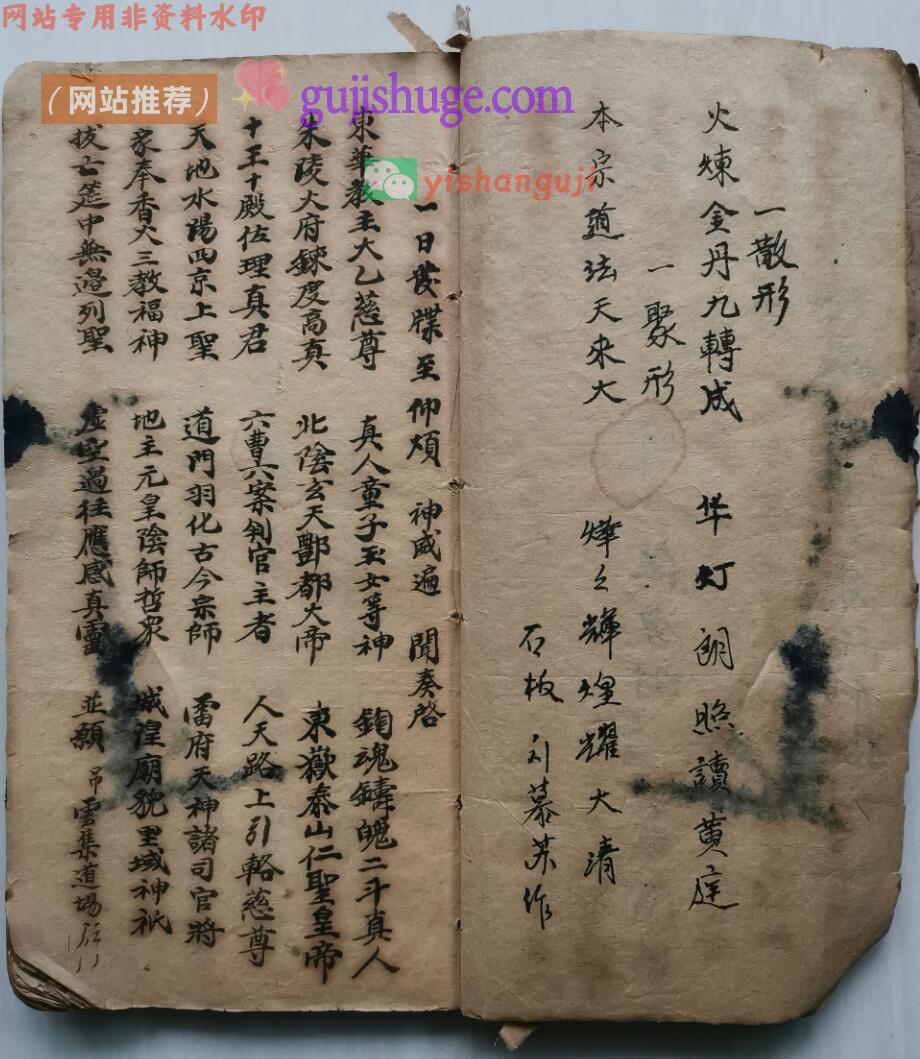 网站专用非资料水印
（网站推荐）
gujishuge.com
yishanguji
一散形
火煉金丹九轉成 华灯朗照讀黄庭
一聚形
本宗道法天來大 燁々輝煌耀大清
石板 刘慕苏作
一日發牒至仰煩 神威遍 聞奏啓
東華教主大乙慈尊 真人童子玉女等神 鈎魂鑄魄二斗真人
朱陵火府鍊度高真 北陰玄天酆都大帝 東嶽泰山仁聖皇帝
十王十殿佐理真君 六曹六案判官主者 人天路上引輅慈尊
天地水陽四京上聖 道門羽化古今宗師 雷府天神諸司官將
家奉香火三教福神 地主元皇陰師哲衆 城隍廟貌里域神祇
拔亡筵中無邉列聖 虚空過往應感真靈 並願 吊雲集道場